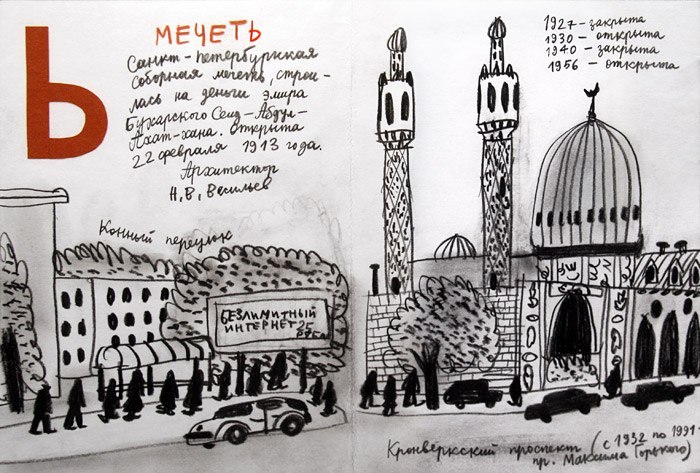 Ь
МЕЧЕТЬ
Санкт-петербургская
соборная мечеть, строи-
лась на деньги эмира
Бухарского Сеид-Абдул-
Ахат-хана. открыта
22 февраля 1913 года.
Архитектор
Н, В, Васильев
1927-закрыта
1930-открыта
1940-закрыта
1956-открыта
Конный переулок
БЕЗЛИМИТНЫЙ
ИНТЕРНЕТ
Кронверкский проспект (с 1932 по 1991-
пр. Максима Горького)